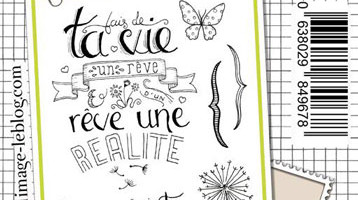 fais de
ta vie
un rêve
& d'un
rêve une
RÉALITÉ
image-leblog.com
0 638029 849678